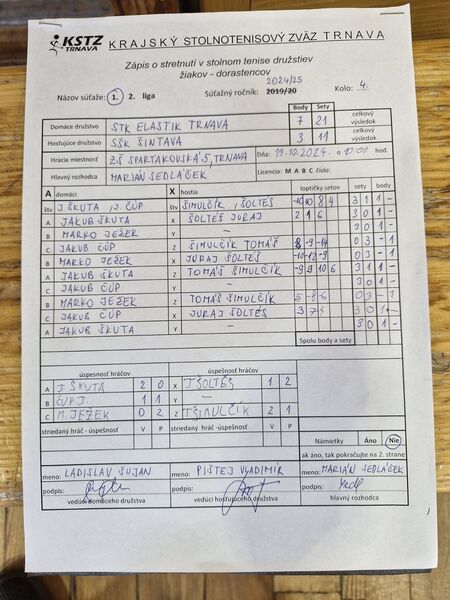 KSTZ TRNAVA KRAJSKÝ STOLNOTENISOVÝ ZVÄZ TRNAVA
Zápis o stretnutí v stolnom tenise družstiev
žiakov - dorastencov
2024/25
Názov súťaže: 1. 2. liga Súťažný ročník: 2019/20 Kolo: 4.
Body Sety
Domáce družstvo STK ELASTIK TRNAVA 7 21 celkový výsledok
Hosťujúce družstvo SŠK ŠINTAVA 3 11 celkový výsledok
Hracia miestnosť ZŠ SPARTAKOVSKÁ 5, TRNAVA Dňa: 19.10.2024 o 10:00 hod.
Hlavný rozhodca MARIÁN SEDLÁČEK Licencia: M A B C číslo:
A domáci X hostia loptičky setov sety body
štv J. ŠKUTA, J. ČÚP štv ŠIMULČÍK, ŠOLTÉS -10 10 8 4 3 1 1 -
A JAKUB ŠKUTA X ŠOLTÉS JURAJ 2 1 6 3 0 1 -
B MARKO JEŽEK Y - 3 0 1 -
C JAKUB ČÚP Z ŠIMULČÍK TOMÁŠ 0 3 - 1
B MARKO JEŽEK X JURAJ ŠOLTÉS -10 -12 -9 0 3 - 1
A JAKUB ŠKUTA Z TOMÁŠ ŠIMULČÍK -9 9 10 6 3 1 1 -
C JAKUB ČÚP Y - 3 0 1 -
B MARKO JEŽEK Z TOMÁŠ ŠIMULČÍK -5 -8 -6 0 3 - 1
C JAKUB ČÚP X JURAJ ŠOLTÉS 3 7 3 0 1 -
A JAKUB ŠKUTA Y - 3 0 1 -
Spolu body a sety
úspesnosť hráčov úspešnosť hráčov
A J. ŠKUTA 2 0 X J ŠOLTÉS 1 2
B ČÚP J. 1 1 Y -
C M. JEŽEK 0 2 Z T ŠIMULČÍK 2 1
striedaný hráč - úspešnosť V P striedaný hráč - úspešnosť V P
Námietky Áno Nie
ak áno, tak pokračujte na 2. strane
meno: LADISLAV SUJAN meno: PIŠTEJ VLADIMÍR meno: MARIÁN SEDLÁČEK
podpis: podpis: podpis: Sedl
vedúci domáceho družstva vedúci hosťujúceho družstva hlavný rozhodca